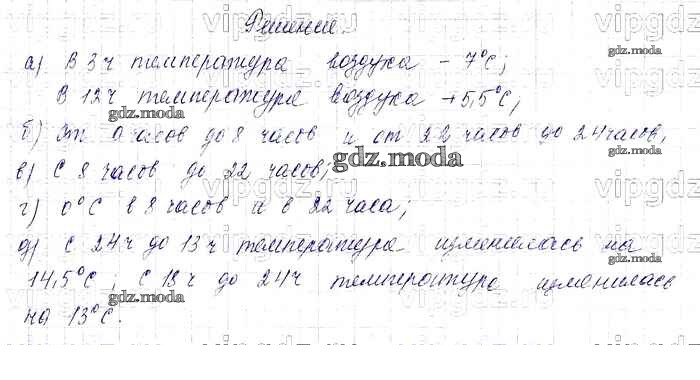 Решение.
а) В 3 ч температура воздуха - 7°С;
В 12 ч температура воздуха +5,5°С;
б) От 0 часов до 8 часов и от 22 часов до 24 часов,
в) С 8 часов до 22 часов;
г) 0°С в 8 часов и в 22 часа;
д) С 24 ч до 13 ч температура изменилась на
14,5°С ; С 13 ч до 24 ч температура изменилась
на 13°С.
gdz.moda
gdz.moda
gdz.moda
gdz.moda
gdz.moda
gdz.moda
gdz.moda